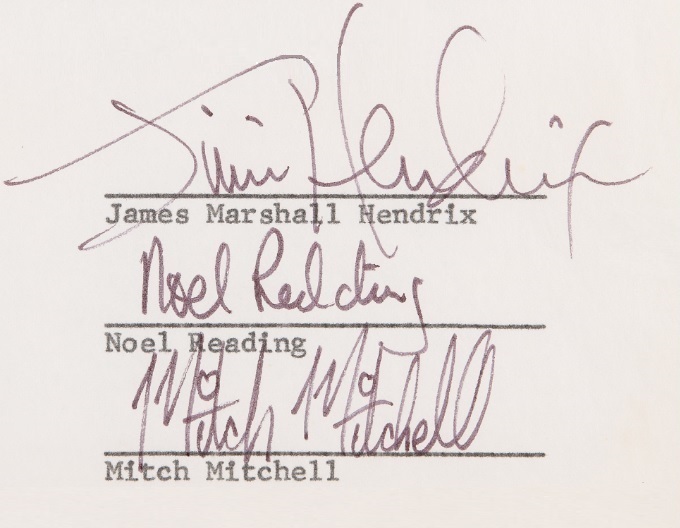 Jimi Hendrix
James Marshall Hendrix
Noel Redding
Noel Reading
Mitch Mitchell
Mitch Mitchell